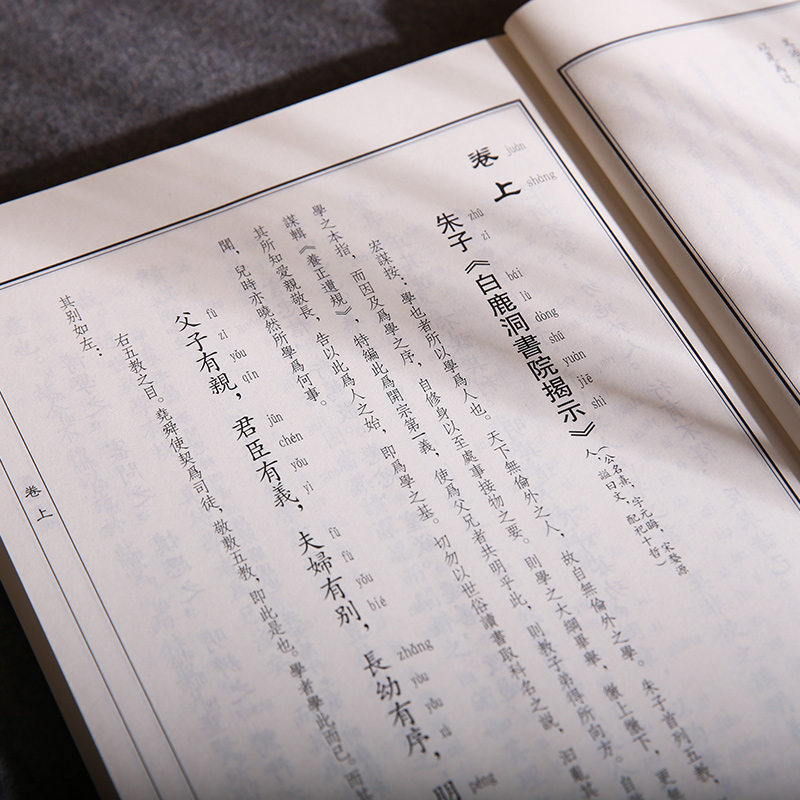 卷上
juàn shàng
朱子《白鹿洞書院揭示》
zhū zǐ bái lù dòng shū yuàn jiē shì
(公名熹,字元晦,宋婺源
人,謚曰文,配祀十哲)
宏謀按:學也者所以學爲人也。天下無倫外之人,故自無倫外之學。朱子首列五教,
學之本指,而因及爲學之序,自修身以至處事接物之要。則學之大綱畢舉,徹上徹下,更無
謀輯《養正遺規》,特編此爲開宗第一義,使爲父兄者共明乎此,則教子弟得所向方。自
其所知愛親敬長,告以此爲人之始,即爲學之基。切勿以世俗讀書取科名之説,汩亂其
聞,兒時亦曉然所學爲何事。
父子有親,君臣有義,夫婦有別,長幼有序,朋
fù zǐ yǒu qīn jūn chén yǒu yì fū fù yǒu bié zhǎng yòu yǒu xù péng
右五教之目。堯舜使契爲司徒,敬敷五教,即此是也。學者學此而已。而其
其別如左:
卷上